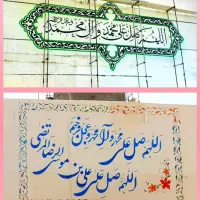 اللهم صل علی محمد وال محمد
اللهم صل علی محمد و آل محمد و عجل فرجهم
اللهم صل علی علی بن موسی الرضا المرتضی